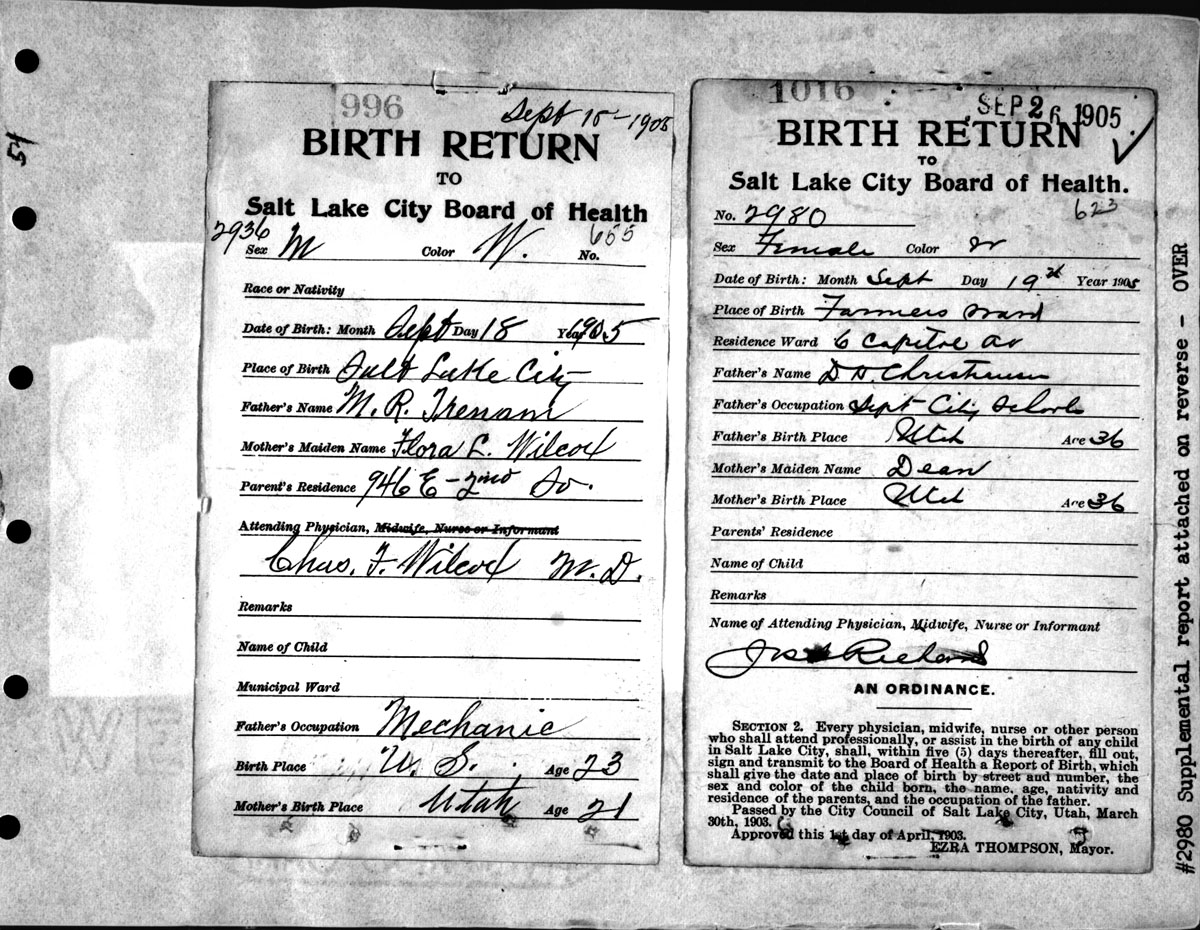 54
996
Sept 15-1905
BIRTH RETURN
TO
Salt Lake City Board of Health
2936 655
Sex M Color W. No.
Race or Nativity
Date of Birth: Month Sept Day 18 Year 1905
Place of Birth Salt Lake City
Father's Name M. R.
Mother's Maiden Name Flora L. Wilcox
Parent's Residence 946 E - 2nd So.
Attending Physician, Midwife, Nurse or Informant
Chas. F. Wilcox M.D.
Remarks
Name of Child
Municipal Ward
Father's Occupation Mechanic
Birth Place U. S. Age 23
Mother's Birth Place Utah Age 21
1016
SEP 26 1905
BIRTH RETURN
TO
Salt Lake City Board of Health.
623
No. 2980
Sex Female Color W
Date of Birth: Month Sept Day 19 Year 1905
Place of Birth Farmers Ward
Residence Ward 6 Capitol Av
Father's Name D. H. Christensen
Father's Occupation Supt City Schools
Father's Birth Place Utah Age 36
Mother's Maiden Name Dean
Mother's Birth Place Utah Age 36
Parents' Residence
Name of Child
Remarks
Name of Attending Physician, Midwife, Nurse or Informant
Jos Richards
AN ORDINANCE.
SECTION 2. Every physician, midwife, nurse or other person
who shall attend professionally, or assist in the birth of any child
in Salt Lake City, shall, within five (5) days thereafter, fill out,
sign and transmit to the Board of Health a Report of Birth, which
shall give the date and place of birth by street and number, the
sex and color of the child born, the name, age, nativity and
residence of the parents, and the occupation of the father.
Passed by the City Council of Salt Lake City, Utah, March
30th, 1903.
Approved this 1st day of April, 1903.
EZRA THOMPSON, Mayor.
#2980 Supplemental report attached on reverse - OVER